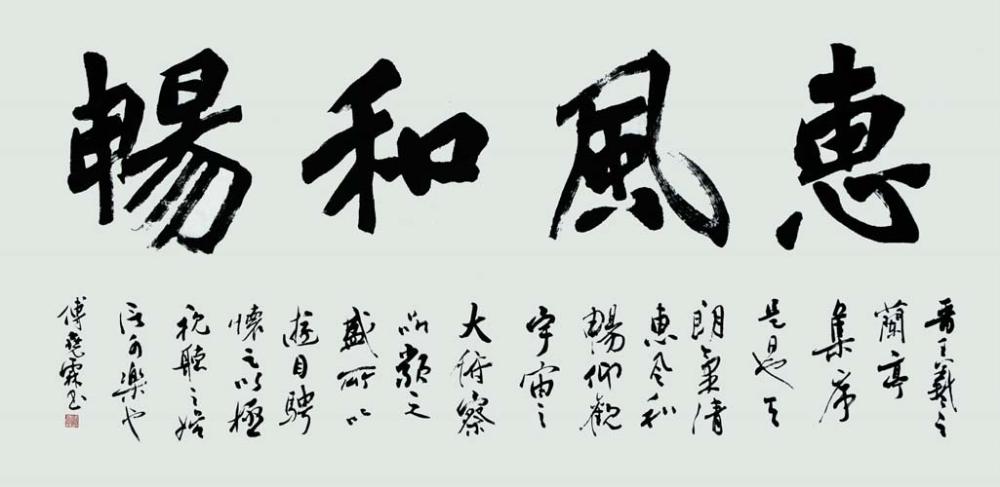 惠風和暢
晉王羲之
蘭亭
集序
是日也天
朗氣清
惠風和
暢仰觀
宇宙之
大俯察
品類之
盛所以
遊目騁
懷足以極
視聽之娛
信可樂也
傅堯霖書